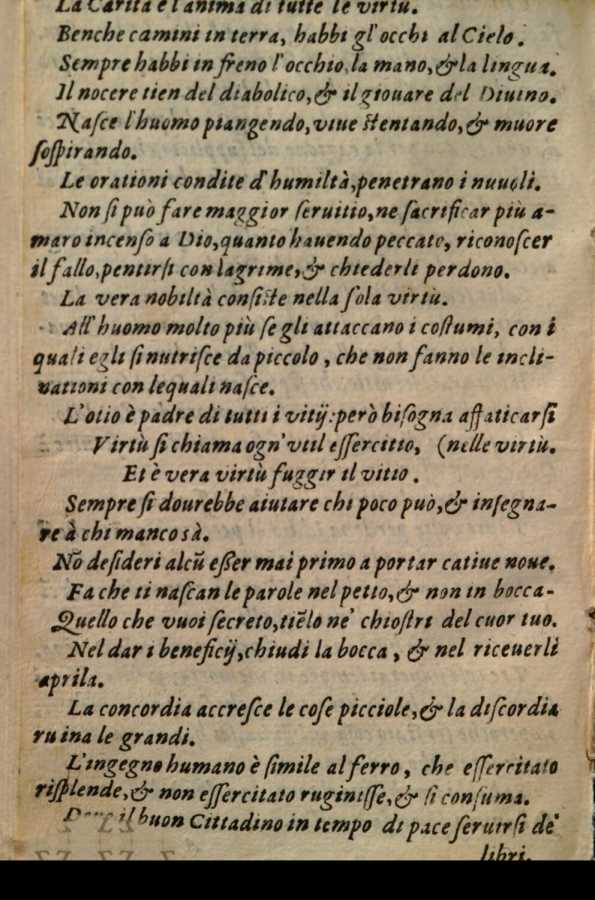 La Carità è l'anima di tutte le virtù.
Benche camini in terra, habbi gl'occhi al Cielo.
Sempre habbi in freno l'occhio, la mano, & la lingua.
Il nocere tien del diabolico, & il giouare del Diuino.
Nasce l'huomo piangendo, viue stentando, & muore
sospirando.
Le orationi condite d'humiltà, penetrano i nuuoli.
Non si può fare maggior seruitio, ne sacrificar più a-
maro incenso a Dio, quanto hauendo peccato, riconoscer
il fallo, pentirsi con lagrime, & chiederli perdono.
La vera nobiltà consiste nella sola virtù.
All'huomo molto più se gli attaccano i costumi, con i
quali egli si nutrisce da piccolo, che non fanno le incli-
nationi con lequali nasce.
L'otio è padre di tutti i vitij: però bisogna affaticarsi
Virtù si chiama ogn'vtil essercitio, (nelle virtù.
Et è vera virtù fuggir il vitio.
Sempre si dourebbe aiutare chi poco può, & insegna-
re à chi manco sà.
Nō desideri alcū esser mai primo a portar catiue noue.
Fa che ti nascan le parole nel petto, & non in bocca.
Quello che vuoi secreto, tiēlo ne' chiostri del cuor tuo.
Nel dar i beneficij, chiudi la bocca, & nel riceuerli
aprila.
La concordia accresce le cose picciole, & la discordia
ruina le grandi.
L'ingegno humano è simile al ferro, che essercitato
risplende, & non essercitato ruginisse, & si consuma.
Deue il buon Cittadino in tempo di pace seruirsi de'
libri.